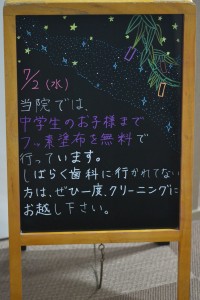 7/2(水)
当院では、
中学生のお子様まで
フッ素塗布を無料で
行っています。
しばらく歯科に行かれてない
方は、ぜひ一度、クリーニングに
お越し下さい。